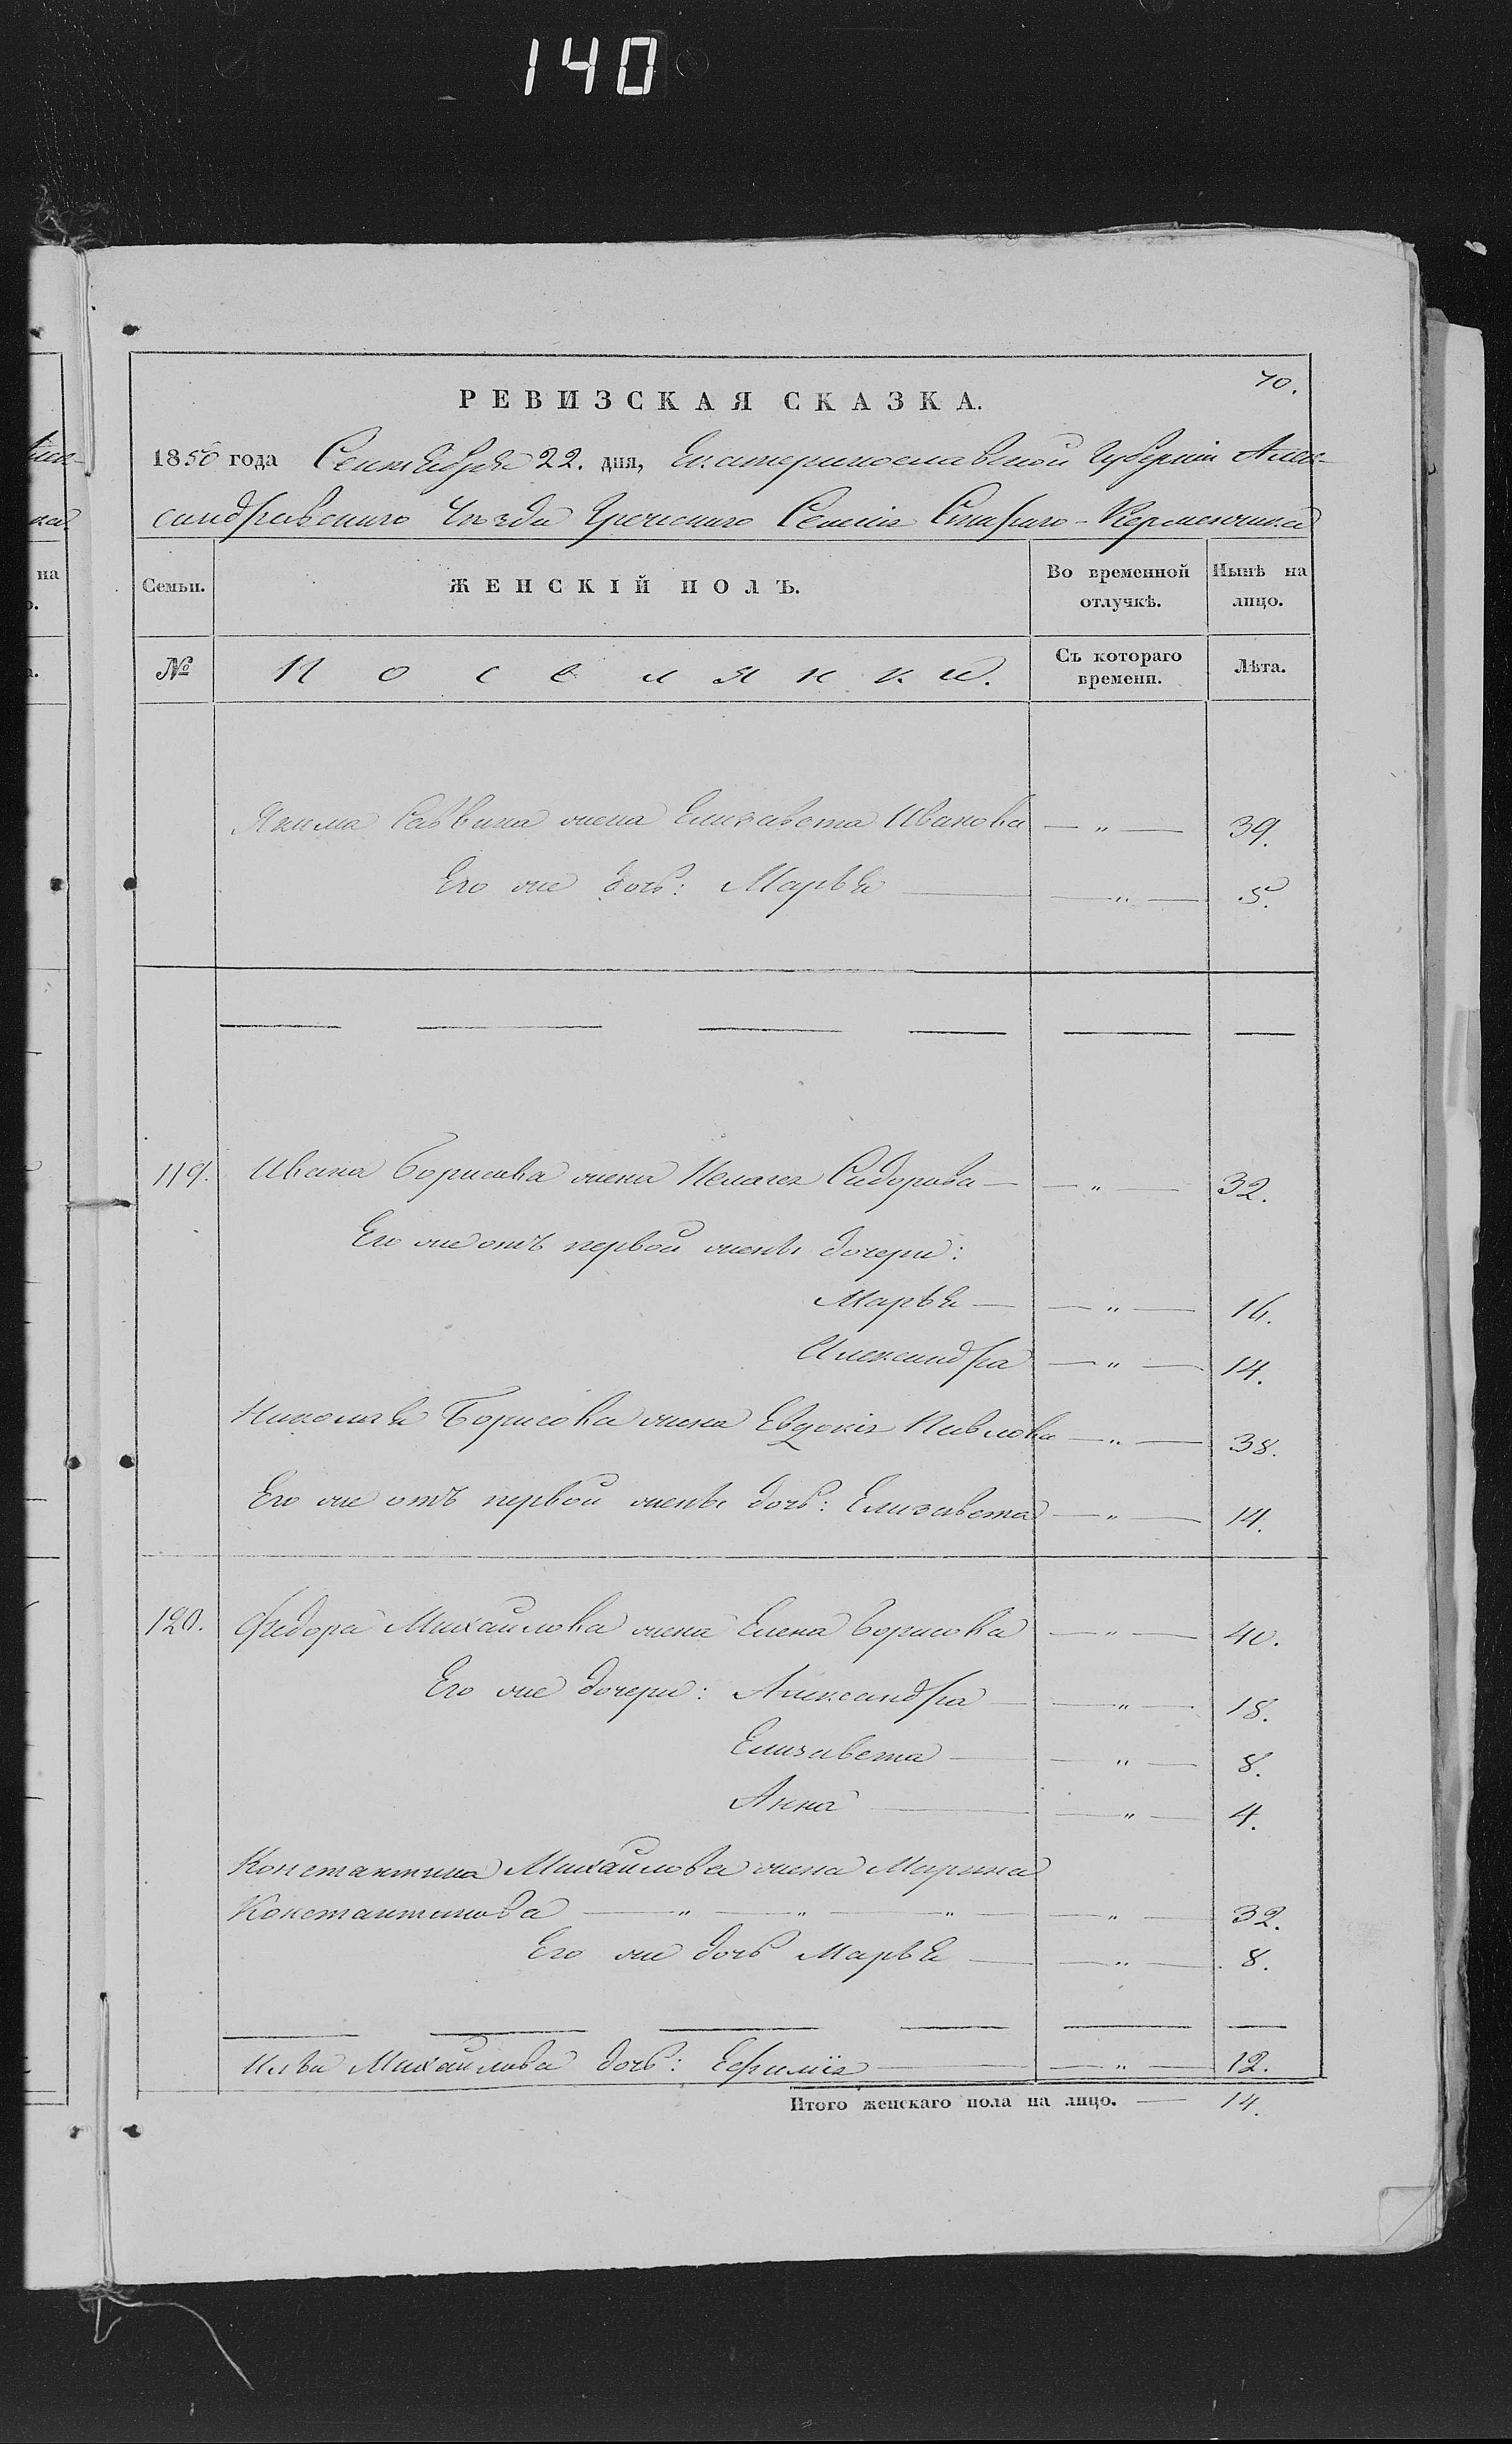 140
70.
РЕВИЗСКАЯ СКАЗКА.
1850 года Сентября 22. дня, Екатеринославской Губернiи Алек-
сандровскаго Уѣзда Греческаго Селенiя Стараго-Керменчика
Семьи. ЖЕНСКIЙ ПОЛЪ. Во временной отлучкѣ. Нынѣ на лицо.
№ Поселянки. Съ котораго времени. Лѣта.
Якима Саввина жена Елизавета Иванова — „ — 39.
Его же дочь: Марья — „ — 5.
119. Ивана Борисова жена Пелагея Сидорова — „ — 32.
Его же отъ первой жены дочери:
Марья — „ — 16.
Александра — „ — 14.
Николая Борисова жена Евдокiя Павлова — „ — 38.
Его же отъ первой жены дочь: Елизавета — „ — 14.
120. Федора Михайлова жена Елена Борисова — „ — 40.
Его же дочери: Александра — „ — 18.
Елизавета — „ — 8.
Анна — „ — 4.
Константина Михайлова жена Марина
Константинова — „ — „ — „ — „ — 32.
Его же дочь Марья — „ — 8.
Ильи Михайлова дочь: Ефимiя — „ — 12.
Итого женскаго пола на лицо. — 14.
на